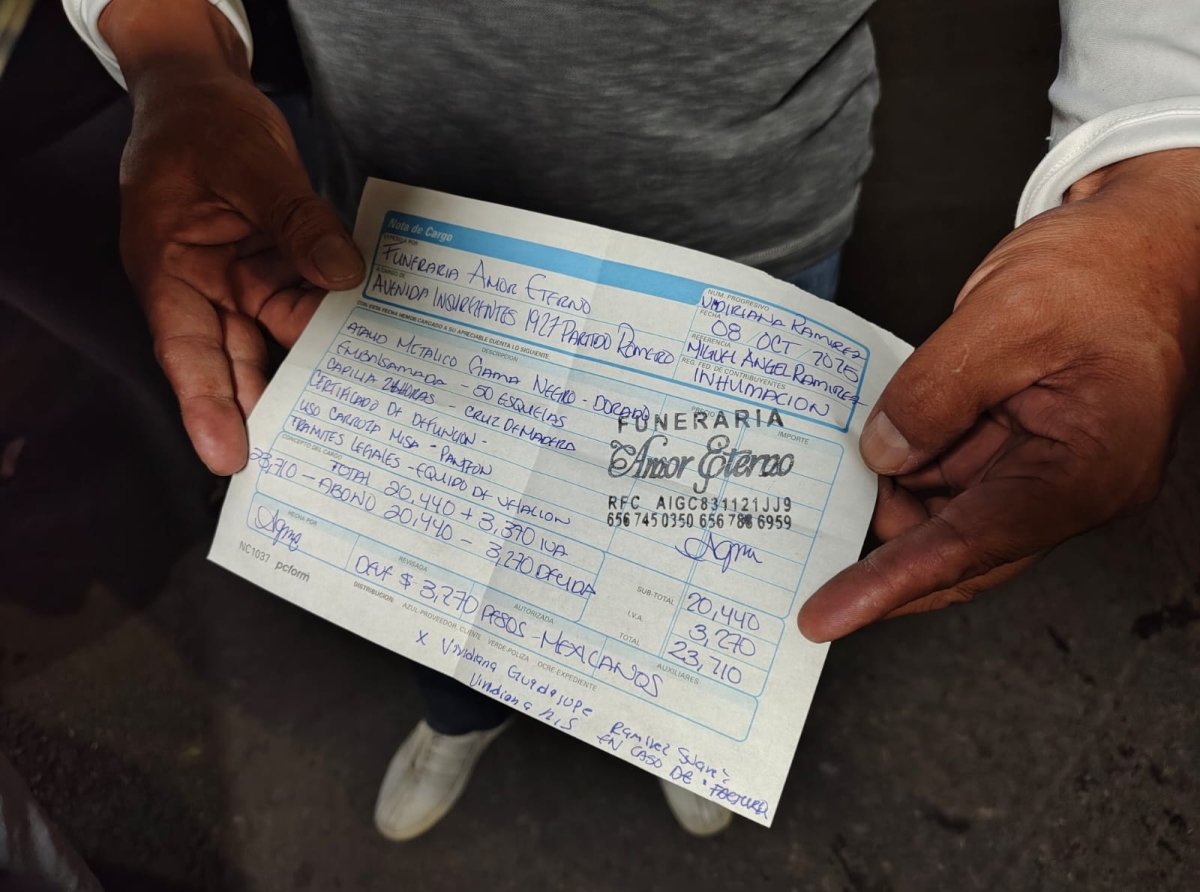 Nota de Cargo
EXPEDIDA POR
FUNERARIA AMOR ETERNO
A CARGO DE
AVENIDA INSURGENTES 1927 PARTIDO ROMERO
NUM. PROGRESIVO
VIDIRIANA RAMIREZ
FECHA
08 / OCT / 2025
REFERENCIA
MIGUEL ANGEL RAMIREZ
REG. FED. DE CONTRIBUYENTES
INHUMACION
CON ESTA FECHA HEMOS CARGADO A SU APRECIABLE CUENTA LO SIGUIENTE
DESCRIPCION
IMPORTE
ATAUD METALICO GAMA NEGRO - DORADO
EMBALSAMADA - 50 ESQUELAS
CAPILLA 24 HORAS - CRUZ DE MADERA
CERTIFICADO DE DEFUNCION -
USO CARROZA MISA - PANTEON
TRAMITES LEGALES - EQUIPO DE VELACION
FUNERARIA
Amor Eterno
RFC AIGC831121JJ9
656 745 0350 656 788 6959
CONCEPTO DEL CARGO
TOTAL 20,440 + 3,270 IVA
23,710 - ABONO 20,440 - 3,270 DEUDA
SUB-TOTAL 20,440
I.V.A. 3,270
TOTAL 23,710
HECHA POR
REVISADA
AUTORIZADA
AUXILIARES
DEUF $ 3,270 PESOS - MEXICANOS
NC1037 pcform
DISTRIBUCION AZUL PROVEEDOR-CLIENTE VERDE-POLIZA OCRE-EXPEDIENTE
X Vividiana Guadalupe Ramirez Suarez
Viridiana
EN CASO DE · FACTURA